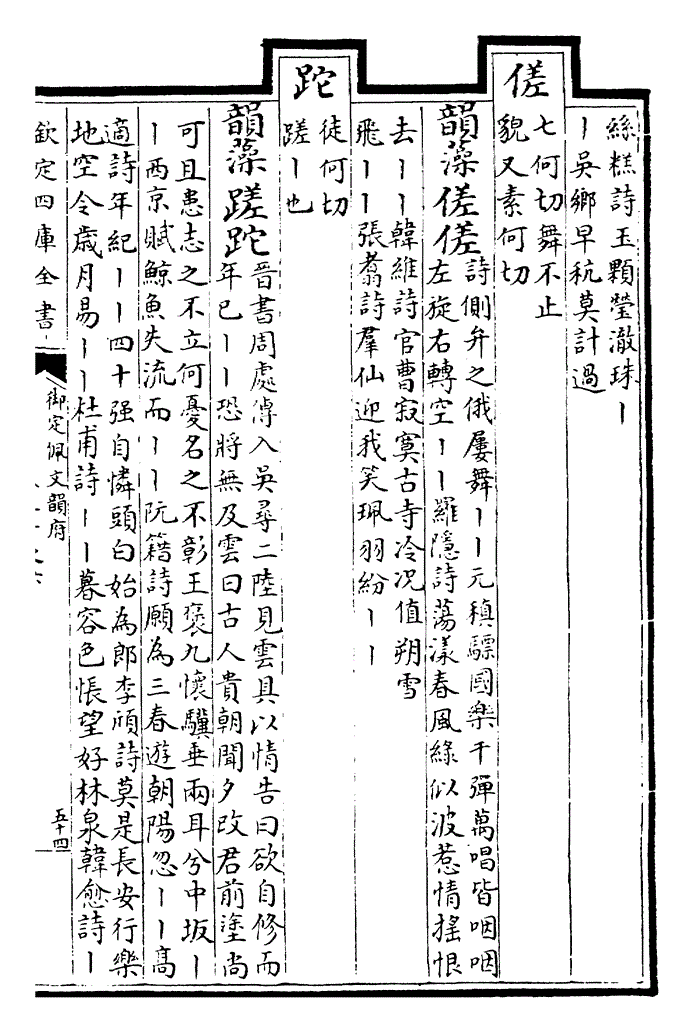 絲糕詩玉顆瑩澈珠丨
丨吳鄉早秔莫計過
傞
七何切舞不止
貌又素何切
韻藻傞傞
詩側弁之俄屢舞丨丨元稹驃國樂千彈萬唱皆咽咽
左旋右轉空丨丨羅隱詩蕩漾春風綠似波惹情搖恨
去丨丨韓維詩官曹寂寞古寺冷况值朔雪
飛丨丨張翥詩羣仙迎我笑珮羽紛丨丨
跎
徒何切
蹉丨也
韻藻蹉跎
晉書周處傳入吳尋二陸見雲具以情告曰欲自修而
年已丨丨恐將無及雲曰古人貴朝聞夕改君前塗尚
可且患志之不立何憂名之不彰王褒九懷驥垂兩耳兮中坂丨
丨西京賦鯨魚失流而丨丨阮籍詩願為三春遊朝陽忽丨丨高
適詩年紀丨丨四十强自憐頭白始為郎李頎詩莫是長安行樂
地空令歲月易丨丨杜甫詩丨丨暮容色悵望好林泉韓愈詩丨
欽定四庫全書
御定佩文韻府
五十四